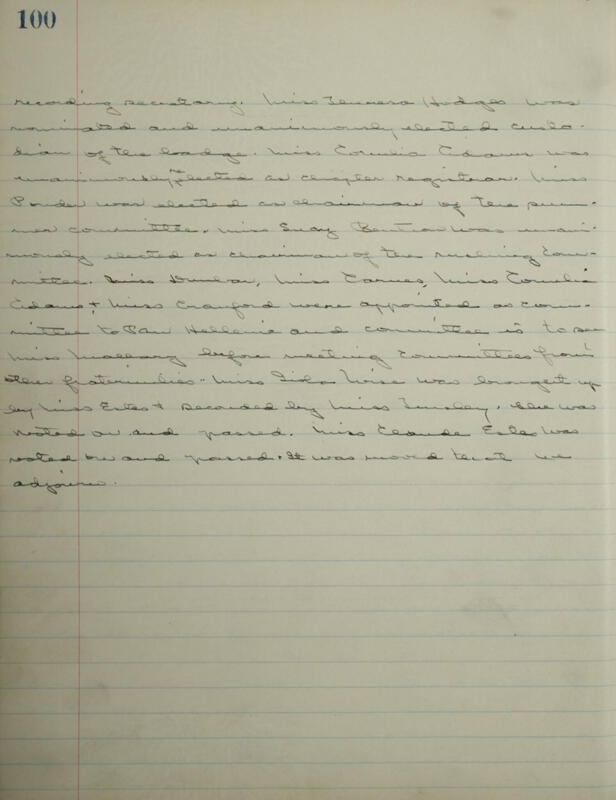 100
recording secretary. Miss Hodges was
nominated and unanimously elected custo-
dian of the badge. Miss Cornelia Adams was
unanimously elected as chapter registrar. Miss
Ponder was elected as chairman of the sum-
mer committee. Miss Suay Benton was unani-
mously elected as chairman of the rushing Com-
mittee. Miss Dunbar, Miss Carnes, Miss Cornelia
Adams + Miss Craxford were appointed as com-
mittee to Pan Hellenic and committee is to see
Miss Mallary before meeting Committees from
other fraternities. Miss Wise was brought up
by Miss Estes + seconded by Miss Tinsley. She was
voted on and passed. Miss Claude Estes was
voted on and passed. It was moved that we
adjourn.